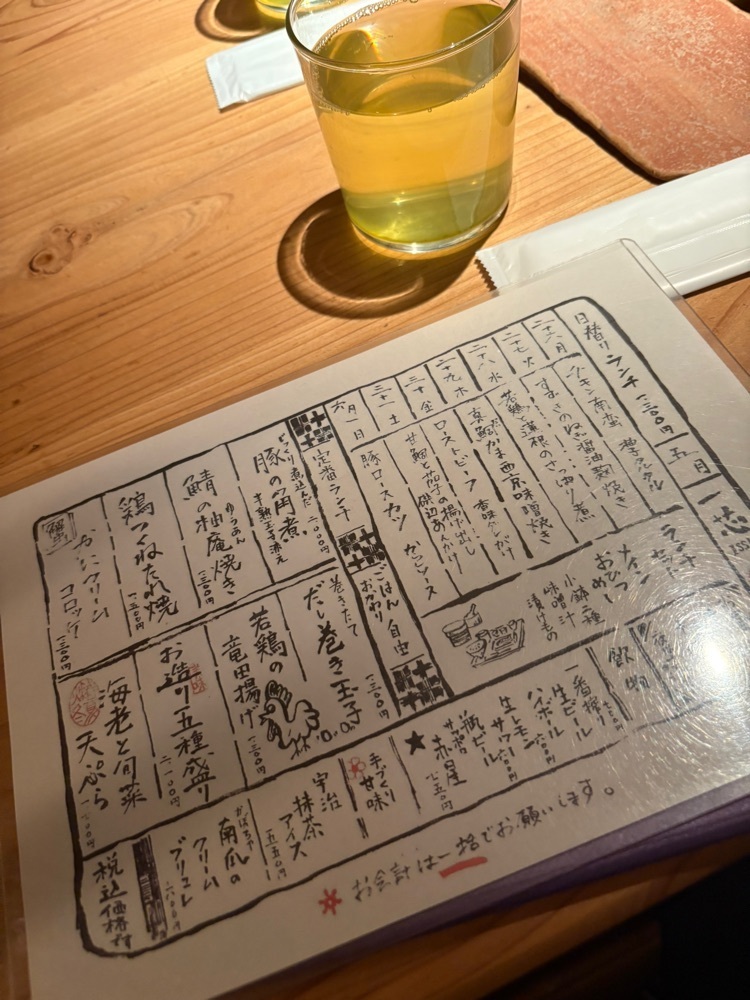 一芯
五月
日替りランチ 一、三〇〇円
二十六 月
チキン南蛮 柚子タルタル
二十七 火
すずきのねぎ醤油麹焼き
二十八 水
若鶏と蓮根のさっぱり煮
二十九 木
真鯛かま西京味噌焼き
三十 金
ローストビーフ 香味ダレがけ
三十一 土
甘鯛と茄子の揚げ出し 磯辺あんかけ
六月 一 日
豚ロースカツ
ランチセット
メイン
おひつごめし
小鉢二種
味噌汁
漬けもの
定番ランチ
ごはんおかわり自由
じっくり煮込んだ 二、〇〇〇円
豚の角煮 半熟玉子添え
ゆうあん
鯖の柚庵焼き 一、三〇〇円
鶏つくねたれ焼 一、五〇〇円
かにクリームコロッケ 一、三〇〇円
巻きたて
だし巻き玉子 一、三〇〇円
若鶏の竜田揚げ 一、三〇〇円
お造り五種盛り 二、一〇〇円
海老と旬菜天ぷら
飲物
一番搾り
生ビール
ハイボール
生レモンサワー
瓶ビール
サッポロ
★赤星
手づくり甘味
宇治抹茶アイス 五五〇円
かぼちゃ
南瓜のクリームブリュレ
税込価格です
お会計は一括でお願いします。